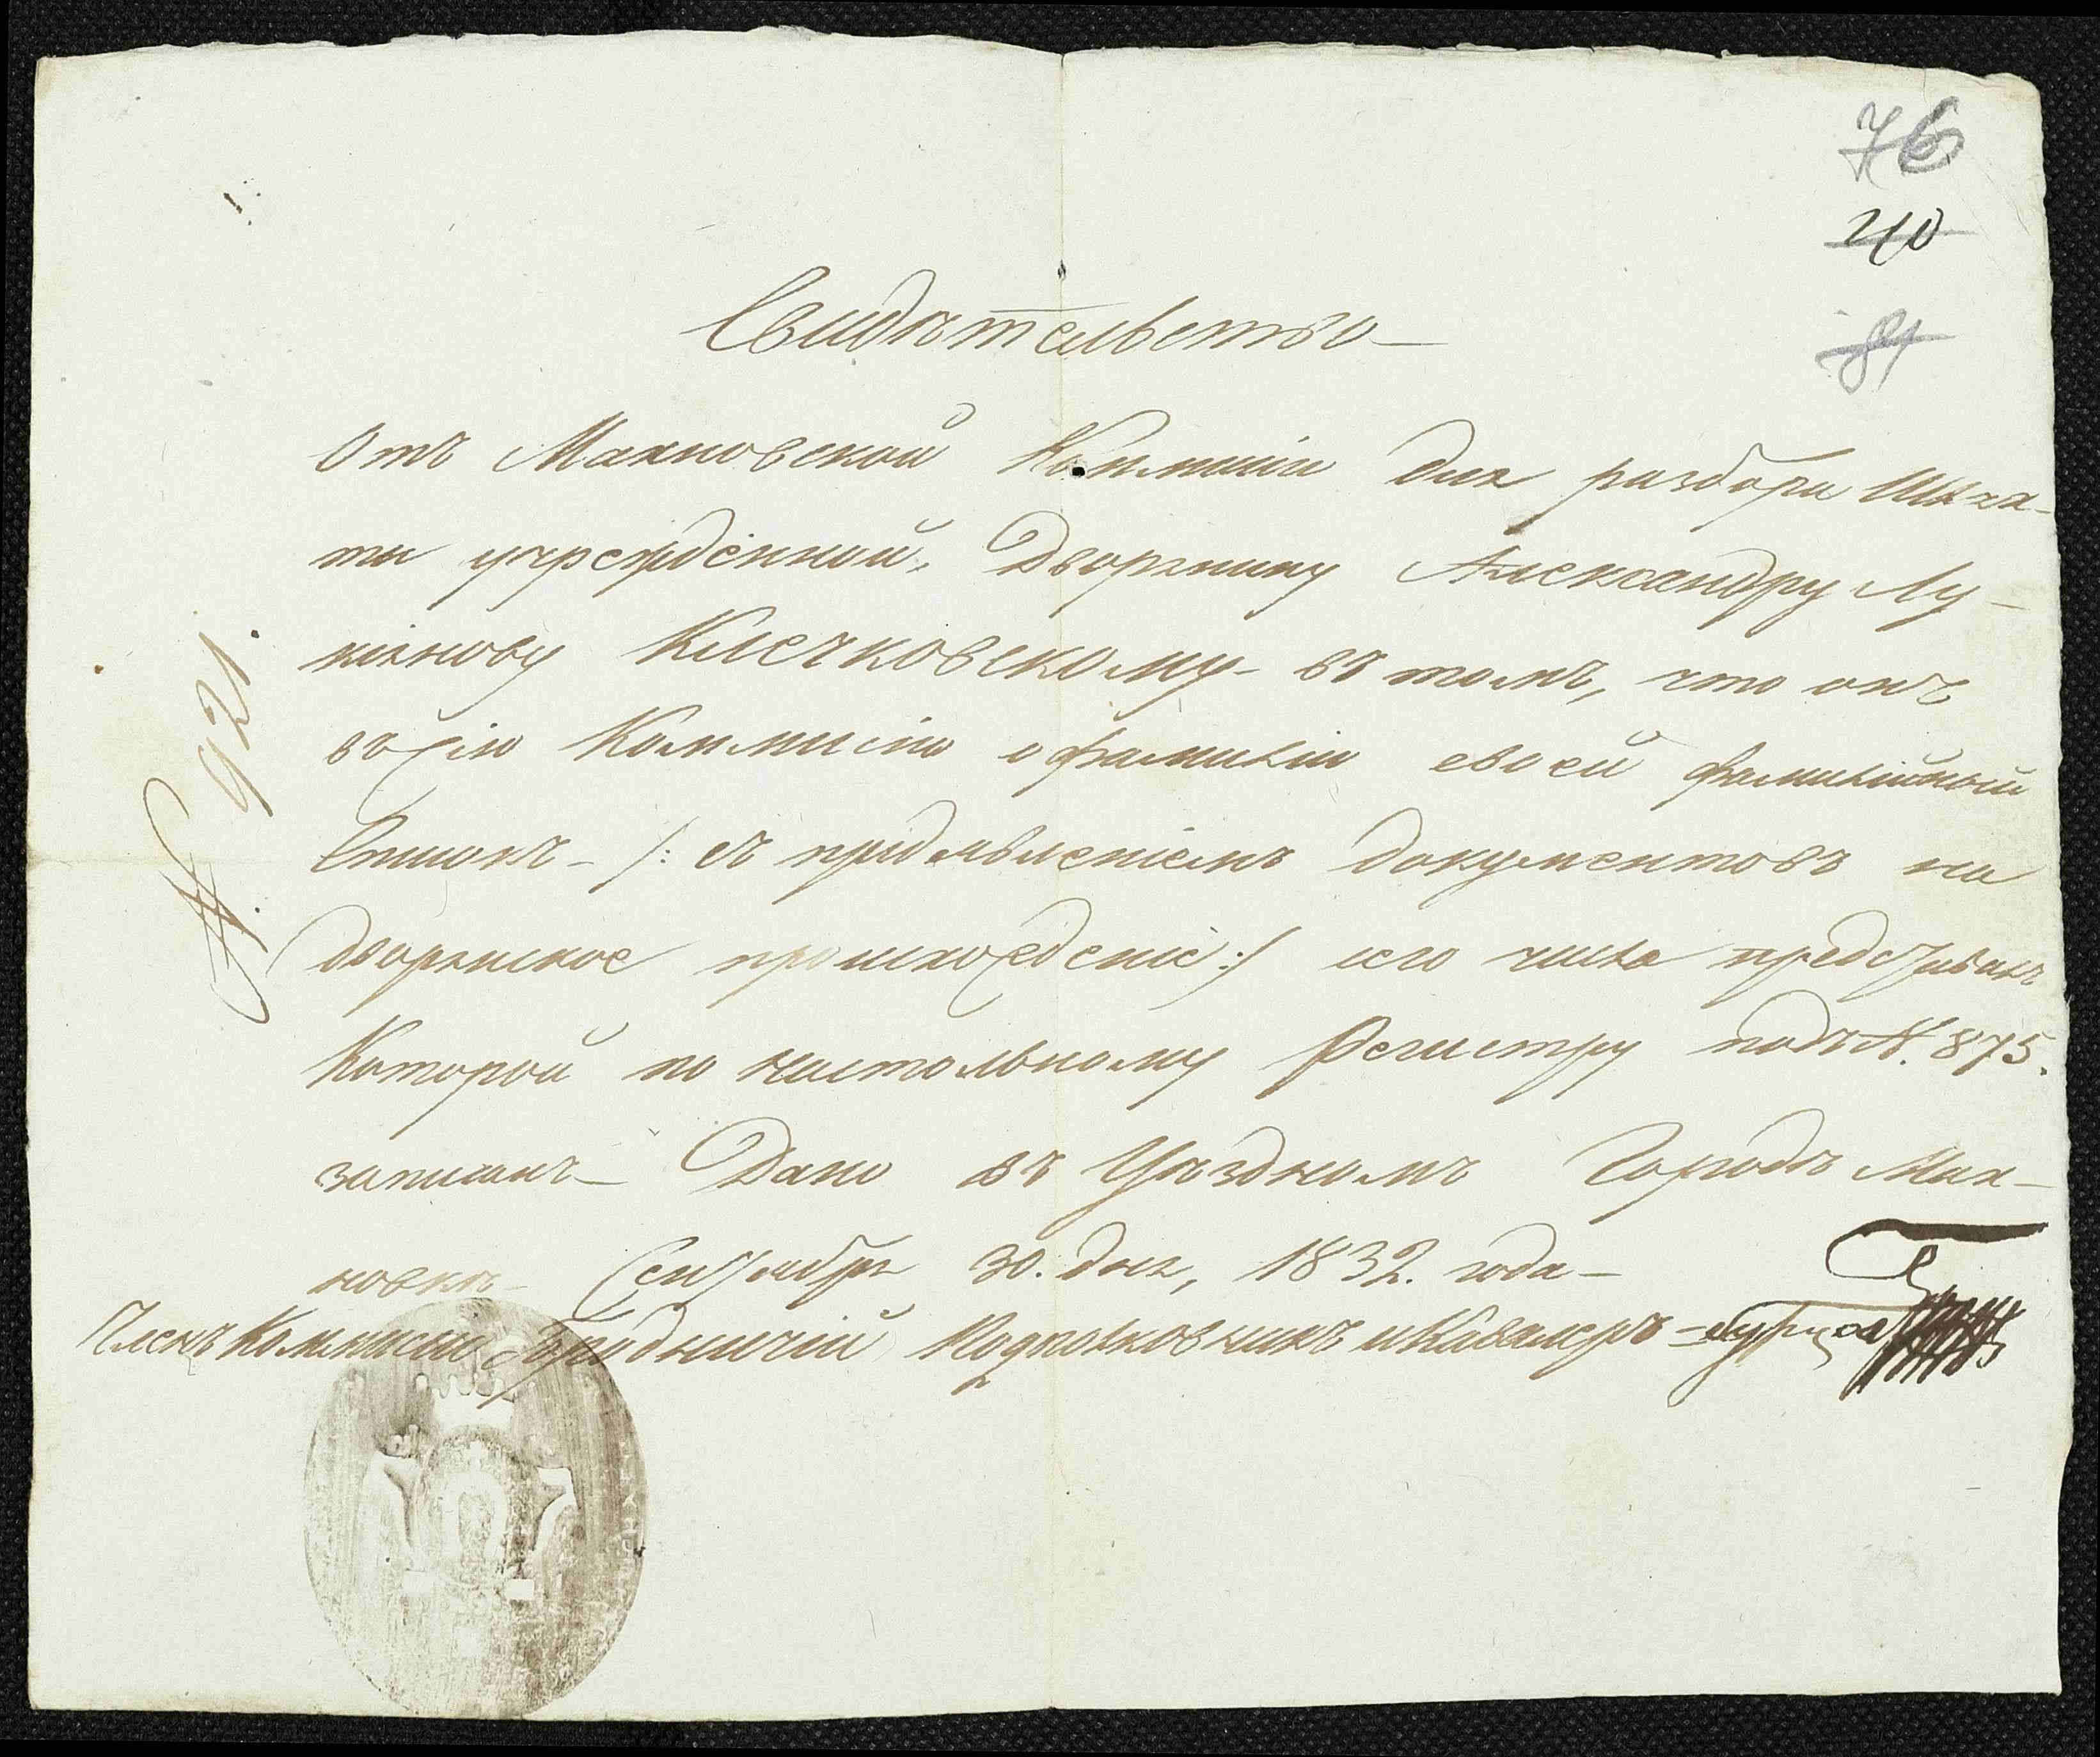 76
40
81
Свидѣтельство
Отъ Махновской Коммисіи для разбора Шлях-
ты учрежденной, Дворянину Александру Лу-
кіянову Клечковскому въ томъ, что онъ
въ сію Коммисію о фамиліи своей фамилійной
Списокъ /: съ предъявленіемъ документовъ на
дворянское происхожденіе :/ сего числа представилъ
Которой по настольному Регистру подъ N. 875.
записанъ Дано въ Уѣздномъ Городѣ Мах-
новкѣ Сентября 30. дня, 1832. года
Членъ Коммисіи Городничій Подполковникъ и Кавалеръ
N. 921.